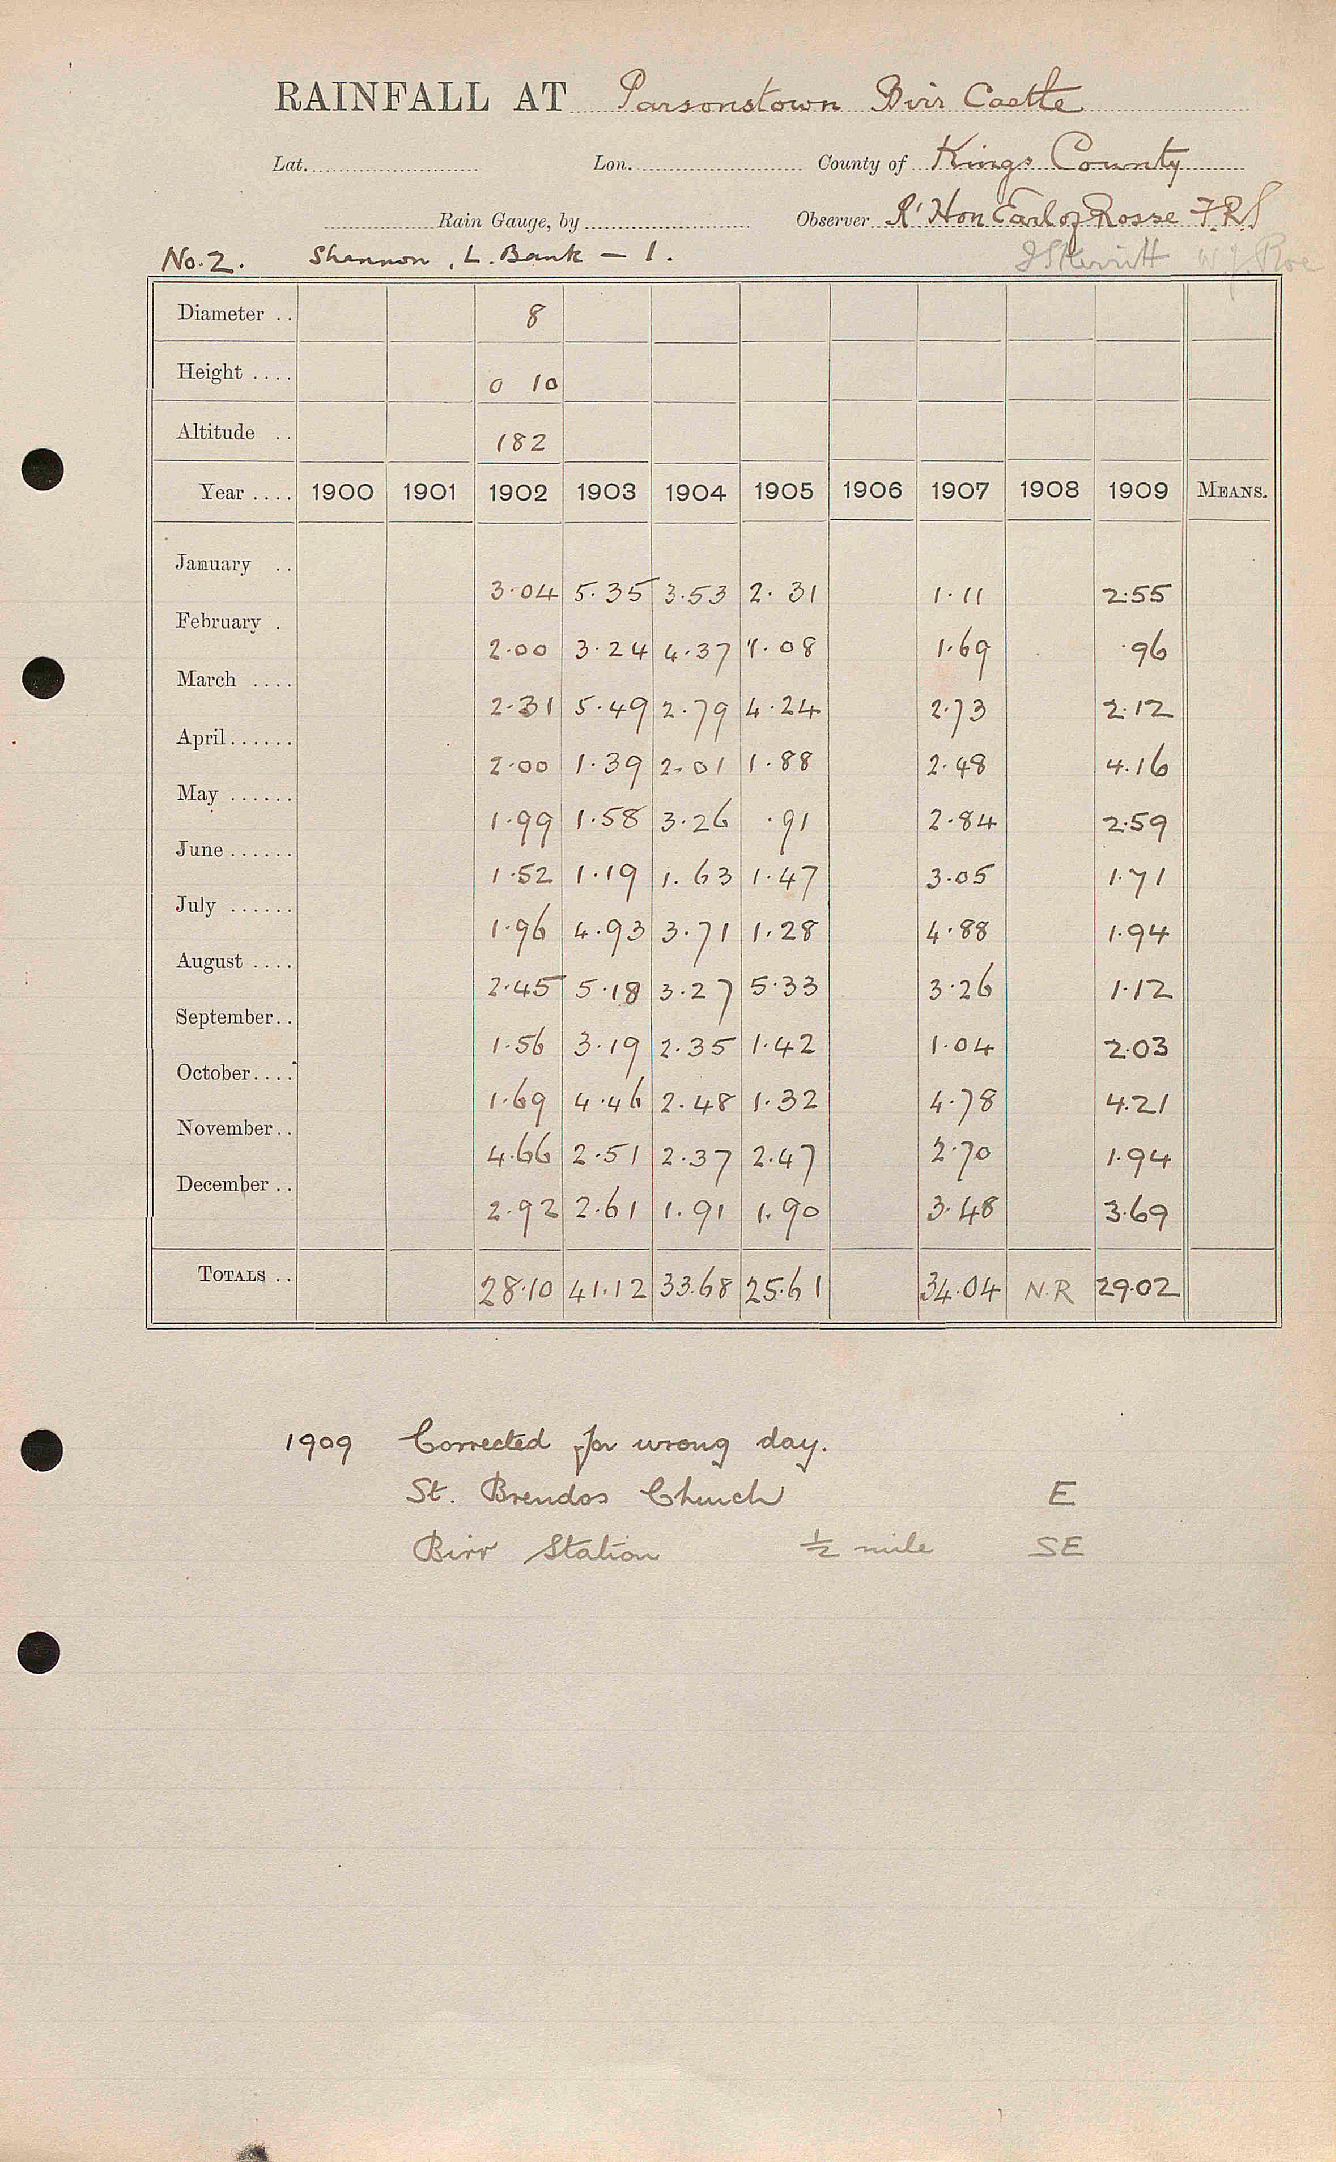 RAINFALL AT Parsonstown Birr Castle
Lat. Lon. County of Kings County
Rain Gauge, by Observer Rt Hon Earl of Rosse F.R.S
No. 2. Shannon, L. Bank - 1.
Diameter .. 8
Height .... 0 10
Altitude .. 182
Year .... 1900 1901 1902 1903 1904 1905 1906 1907 1908 1909 MEANS.
January .. 3.04 5.35 3.53 2.31 1.11 2.55
February . 2.00 3.24 4.37 1.08 1.69 .96
March .... 2.31 5.49 2.79 4.24 2.73 2.12
April...... 2.00 1.39 2.01 1.88 2.48 4.16
May ...... 1.99 1.58 3.26 .91 2.84 2.59
June...... 1.52 1.19 1.63 1.47 3.05 1.71
July ...... 1.96 4.93 3.71 1.28 4.88 1.94
August .... 2.45 5.18 3.27 5.33 3.26 1.12
September.. 1.56 3.19 2.35 1.42 1.04 2.03
October.... 1.69 4.46 2.48 1.32 4.78 4.21
November.. 4.66 2.51 2.37 2.47 2.70 1.94
December .. 2.92 2.61 1.91 1.90 3.48 3.69
TOTALS .. 28.10 41.12 33.68 25.61 34.04 N.R 29.02
1909 Corrected for wrong day.
St. Brendos Church E
Birr Station ½ mile SE